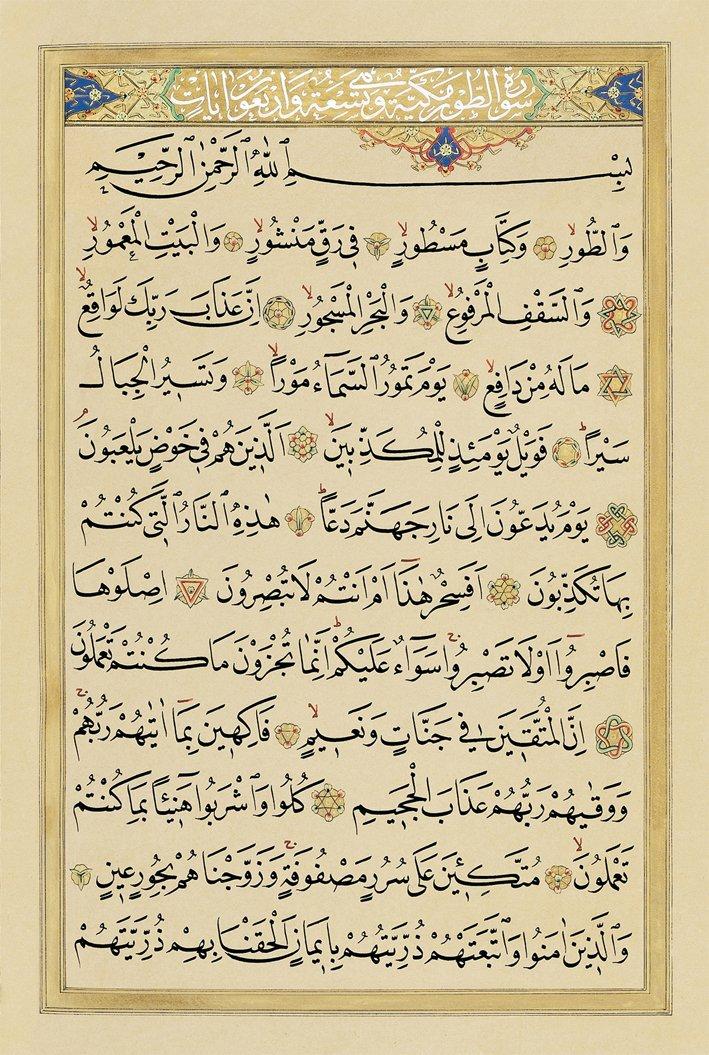 سورة الطور مكية وهي تسعة واربعون ايات
بِسْمِ اللّٰهِ الرَّحْمٰنِ الرَّحِيمِ
وَالطُّورِ وَكِتَابٍ مَسْطُورٍ فِي رَقٍّ مَنْشُورٍ وَالْبَيْتِ الْمَعْمُورِ
وَالسَّقْفِ الْمَرْفُوعِ وَالْبَحْرِ الْمَسْجُورِ اِنَّ عَذَابَ رَبِّكَ لَوَاقِعٌ
مَا لَهُ مِنْ دَافِعٍ يَوْمَ تَمُورُ السَّمَاءُ مَوْرًا وَتَسِيرُ الْجِبَالُ
سَيْرًا فَوَيْلٌ يَوْمَئِذٍ لِلْمُكَذِّبِينَ اَلَّذِينَ هُمْ فِي خَوْضٍ يَلْعَبُونَ
يَوْمَ يُدَعُّونَ اِلٰى نَارِ جَهَنَّمَ دَعًّا هٰذِهِ النَّارُ الَّتِي كُنْتُمْ
بِهَا تُكَذِّبُونَ اَفَسِحْرٌ هٰذَا اَمْ اَنْتُمْ لَا تُبْصِرُونَ اِصْلَوْهَا
فَاصْبِرُوا اَوْ لَا تَصْبِرُوا سَوَاءٌ عَلَيْكُمْ اِنَّمَا تُجْزَوْنَ مَا كُنْتُمْ تَعْمَلُونَ
اِنَّ الْمُتَّقِينَ فِي جَنَّاتٍ وَنَعِيمٍ فَاكِهِينَ بِمَا اٰتٰيهُمْ رَبُّهُمْ
وَوَقٰيهُمْ رَبُّهُمْ عَذَابَ الْجَحِيمِ كُلُوا وَاشْرَبُوا هَنِيئًا بِمَا كُنْتُمْ
تَعْمَلُونَ مُتَّكِئِينَ عَلٰى سُرُرٍ مَصْفُوفَةٍ وَزَوَّجْنَاهُمْ بِحُورٍ عِينٍ
وَالَّذِينَ اٰمَنُوا وَاتَّبَعَتْهُمْ ذُرِّيَّتُهُمْ بِاِيمَانٍ اَلْحَقْنَا بِهِمْ ذُرِّيَّتَهُمْ